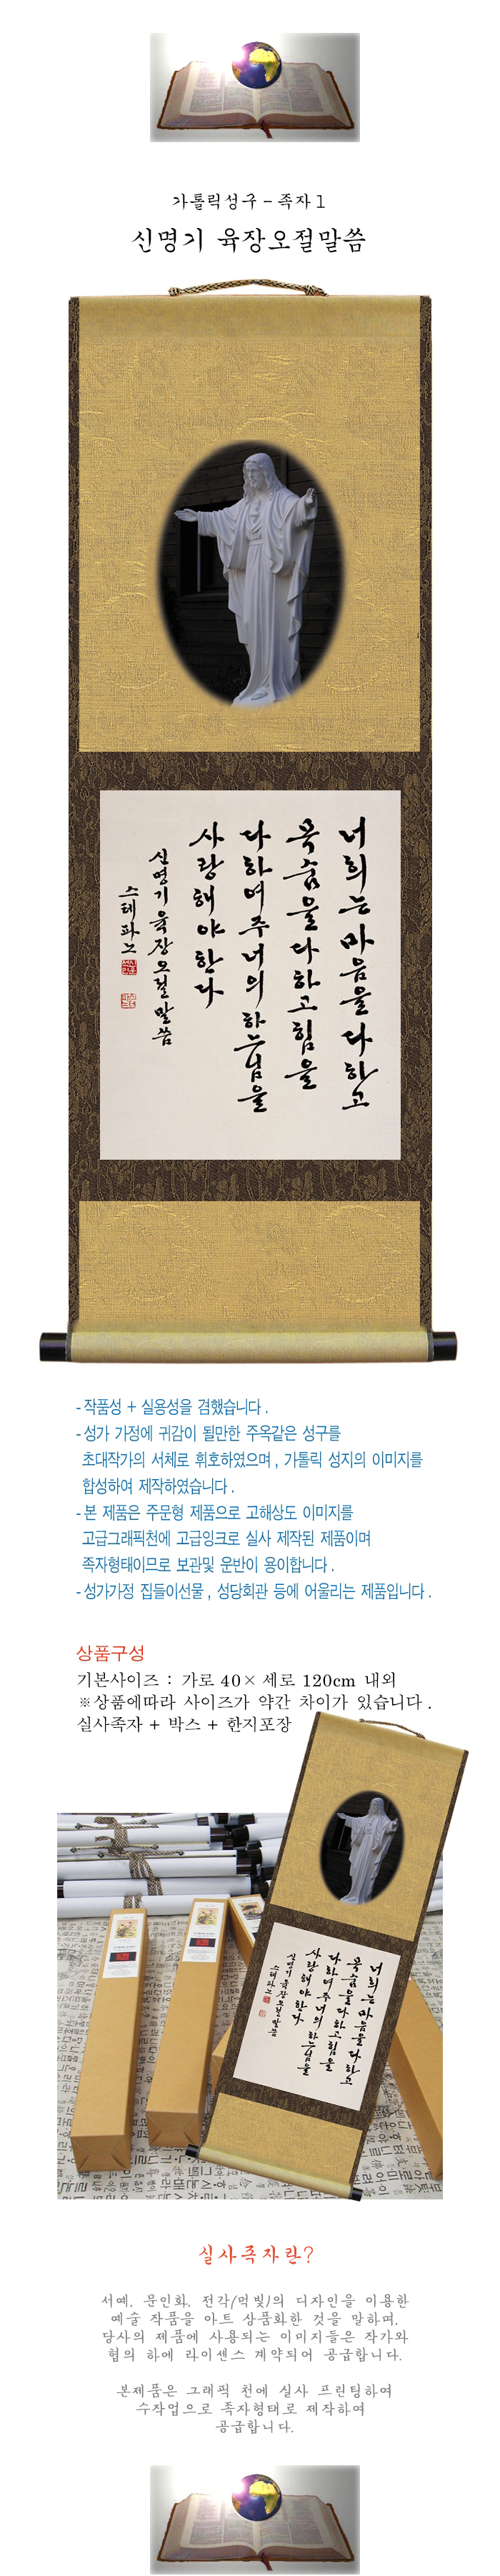 가톨릭성구 - 족자1
신명기 육장오절말씀
너희는마음을다하고
목숨을다하고힘을
다하여주너의하느님을
사랑해야한다
신명기육장오절말씀
스테파노
- 작품성 + 실용성을 겸했습니다 .
- 성가 가정에 귀감이 될만한 주옥같은 성구를
초대작가의 서체로 휘호하였으며 , 가톨릭 성지의 이미지를
합성하여 제작하였습니다 .
- 본 제품은 주문형 제품으로 고해상도 이미지를
고급그래픽천에 고급잉크로 실사 제작된 제품이며
족자형태이므로 보관및 운반이 용이합니다 .
- 성가가정 집들이선물 , 성당회관 등에 어울리는 제품입니다 .
상품구성
기본사이즈 : 가로 40× 세로 120cm 내외
※상품에따라 사이즈가 약간 차이가 있습니다 .
실사족자 + 박스 + 한지포장
너희는마음을다하고
목숨을다하고힘을
다하여주너의하느님을
사랑해야한다
신명기육장오절말씀
스테파노
실사족자란?
서예, 문인화, 전각(먹빛)의 디자인을 이용한
예술 작품을 아트 상품화한 것을 말하며,
당사의 제품에 사용되는 이미지들은 작가와
협의 하에 라이센스 계약되어 공급합니다.
본제품은 그래픽 천에 실사 프린팅하여
수작업으로 족자형태로 제작하여
공급합니다.